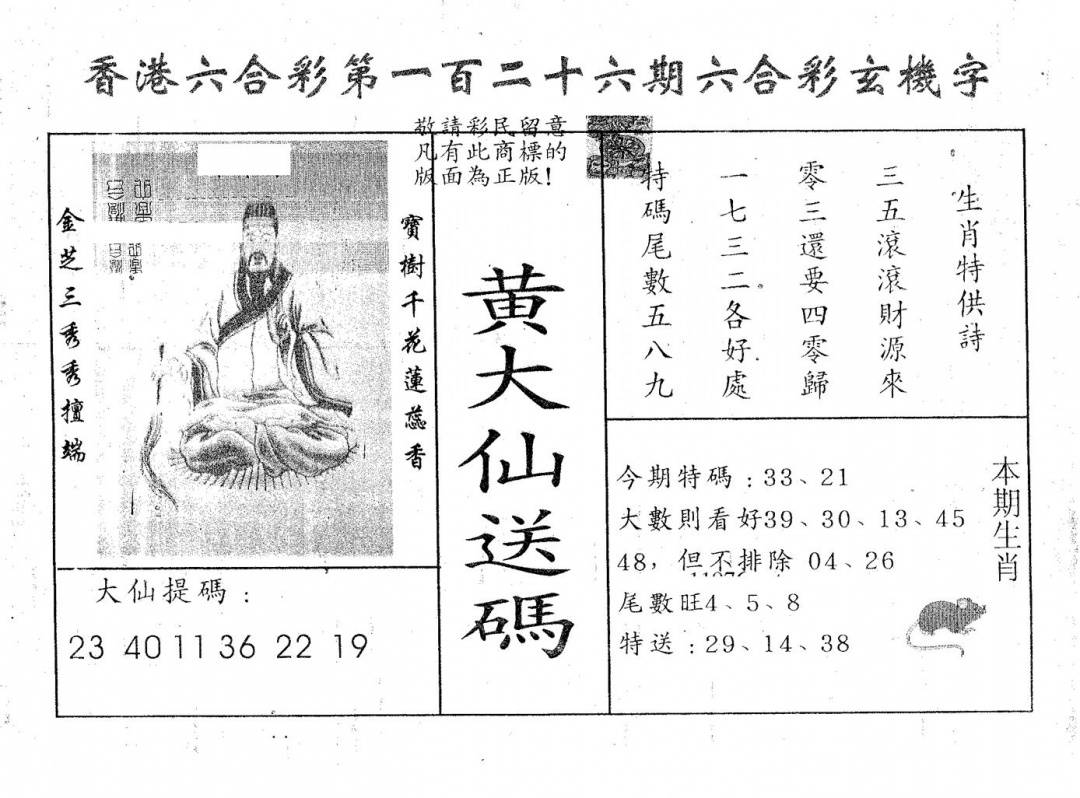 香港六合彩第一百二十六期六合彩玄機字
敬請彩民留意
凡有此商標的
版面為正版!
金芝三秀秀擅端
寶樹千花蓮蕊香
大仙提碼:
23 40 11 36 22 19
黃大仙送碼
生肖特供詩
三五滾滾財源來
零三還要四零歸
一七三二各好處
特碼尾數五八九
今期特碼:33、21
大數則看好39、30、13、45
48,但不排除 04、26
尾數旺4、5、8
特送:29、14、38
本期生肖